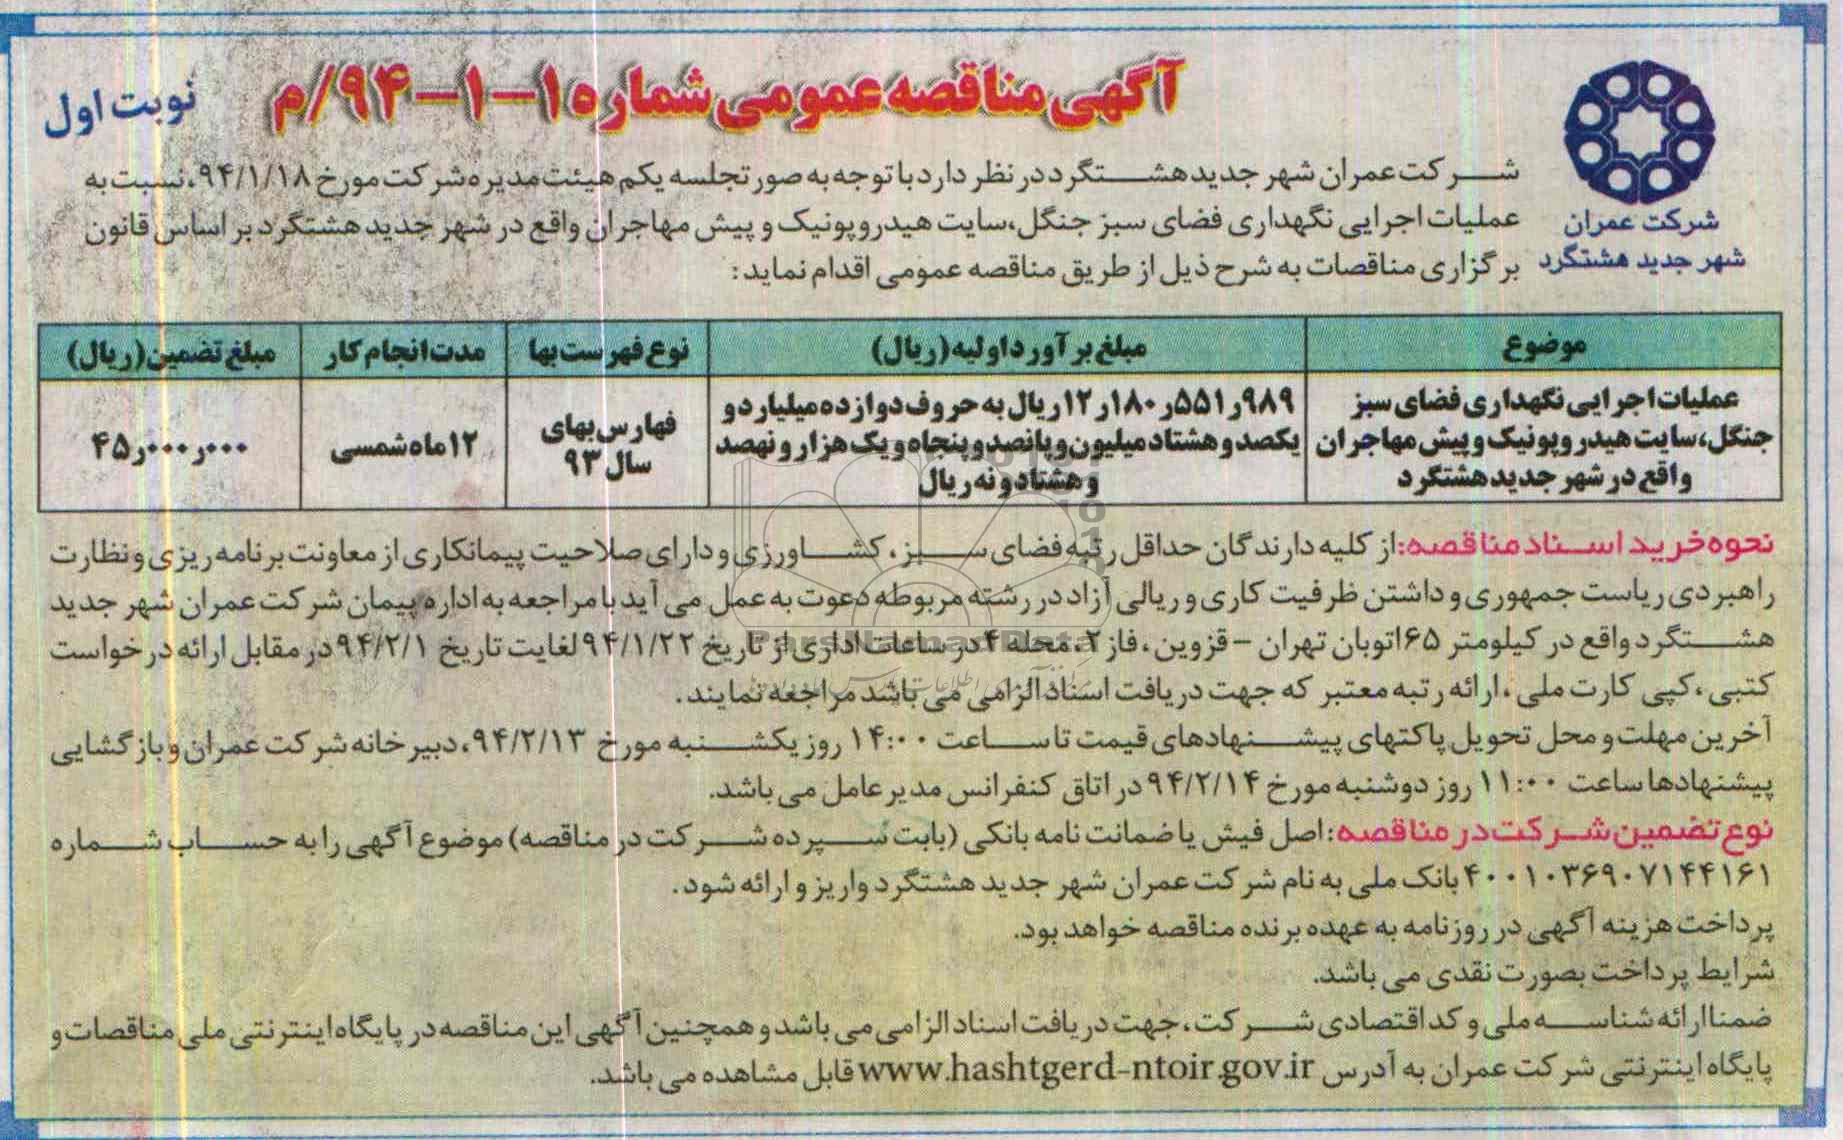 آگهی مناقصه عمومی شماره ۱-۱-۹۴/م
نوبت اول
شرکت عمران
شهر جدید هشتگرد
شرکت عمران شهر جدید هشتگرد در نظر دارد با توجه به صورتجلسه یکم هیئت مدیره شرکت مورخ ۹۴/۱/۱۸، نسبت به
عملیات اجرایی نگهداری فضای سبز جنگل،سایت هیدروپونیک و پیش مهاجران واقع در شهر جدید هشتگرد بر اساس قانون
برگزاری مناقصات به شرح ذیل از طریق مناقصه عمومی اقدام نماید:
موضوع | مبلغ برآورد اولیه (ریال) | نوع فهرست بها | مدت انجام کار | مبلغ تضمین (ریال)
عملیات اجرایی نگهداری فضای سبز
جنگل، سایت هیدروپونیک و پیش مهاجران
واقع در شهر جدید هشتگرد
۱۲ر۱۸۰ر۵۵۱ر۹۸۹ ریال به حروف دوازده میلیارد و
یکصد و هشتاد میلیون و پانصد و پنجاه و یک هزار و نهصد
و هشتاد و نه ریال
فهارس بهای
سال ۹۳
۱۲ ماه شمسی
۴۵ر۰۰۰ر۰۰۰
نحوه خرید اسناد مناقصه: از کلیه دارندگان حداقل رتبه فضای سبز، کشاورزی و دارای صلاحیت پیمانکاری از معاونت برنامه ریزی و نظارت
راهبردی ریاست جمهوری و داشتن ظرفیت کاری و ریالی آزاد در رشته مربوطه دعوت به عمل می آید با مراجعه به اداره پیمان شرکت عمران شهر جدید
هشتگرد واقع در کیلومتر ۶۵ اتوبان تهران - قزوین، فاز ۲، محله ۴ در ساعات اداری از تاریخ ۹۴/۱/۲۲ لغایت تاریخ ۹۴/۲/۱ در مقابل ارائه درخواست
کتبی، کپی کارت ملی، ارائه رتبه معتبر که جهت دریافت اسناد الزامی می باشد مراجعه نمایند.
آخرین مهلت و محل تحویل پاکتهای پیشنهادهای قیمت تا ساعت ۱۴:۰۰ روز یکشنبه مورخ ۹۴/۲/۱۳، دبیرخانه شرکت عمران و بازگشایی
پیشنهادها ساعت ۱۱:۰۰ روز دوشنبه مورخ ۹۴/۲/۱۴ در اتاق کنفرانس مدیر عامل می باشد.
نوع تضمین شرکت در مناقصه: اصل فیش یا ضمانت نامه بانکی (بابت سپرده شرکت در مناقصه) موضوع آگهی را به حساب شماره
۴۰۰۱۰۳۶۹۰۷۱۴۴۱۶۱ بانک ملی به نام شرکت عمران شهر جدید هشتگرد واریز و ارائه شود.
پرداخت هزینه آگهی در روزنامه به عهده برنده مناقصه خواهد بود.
شرایط پرداخت بصورت نقدی می باشد.
ضمنا ارائه شناسه ملی و کد اقتصادی شرکت، جهت دریافت اسناد الزامی می باشد و همچنین آگهی این مناقصه در پایگاه اینترنتی ملی مناقصات و
پایگاه اینترنتی شرکت عمران به آدرس www.hashtgerd-ntoir.gov.ir قابل مشاهده می باشد.
ParsNamadData